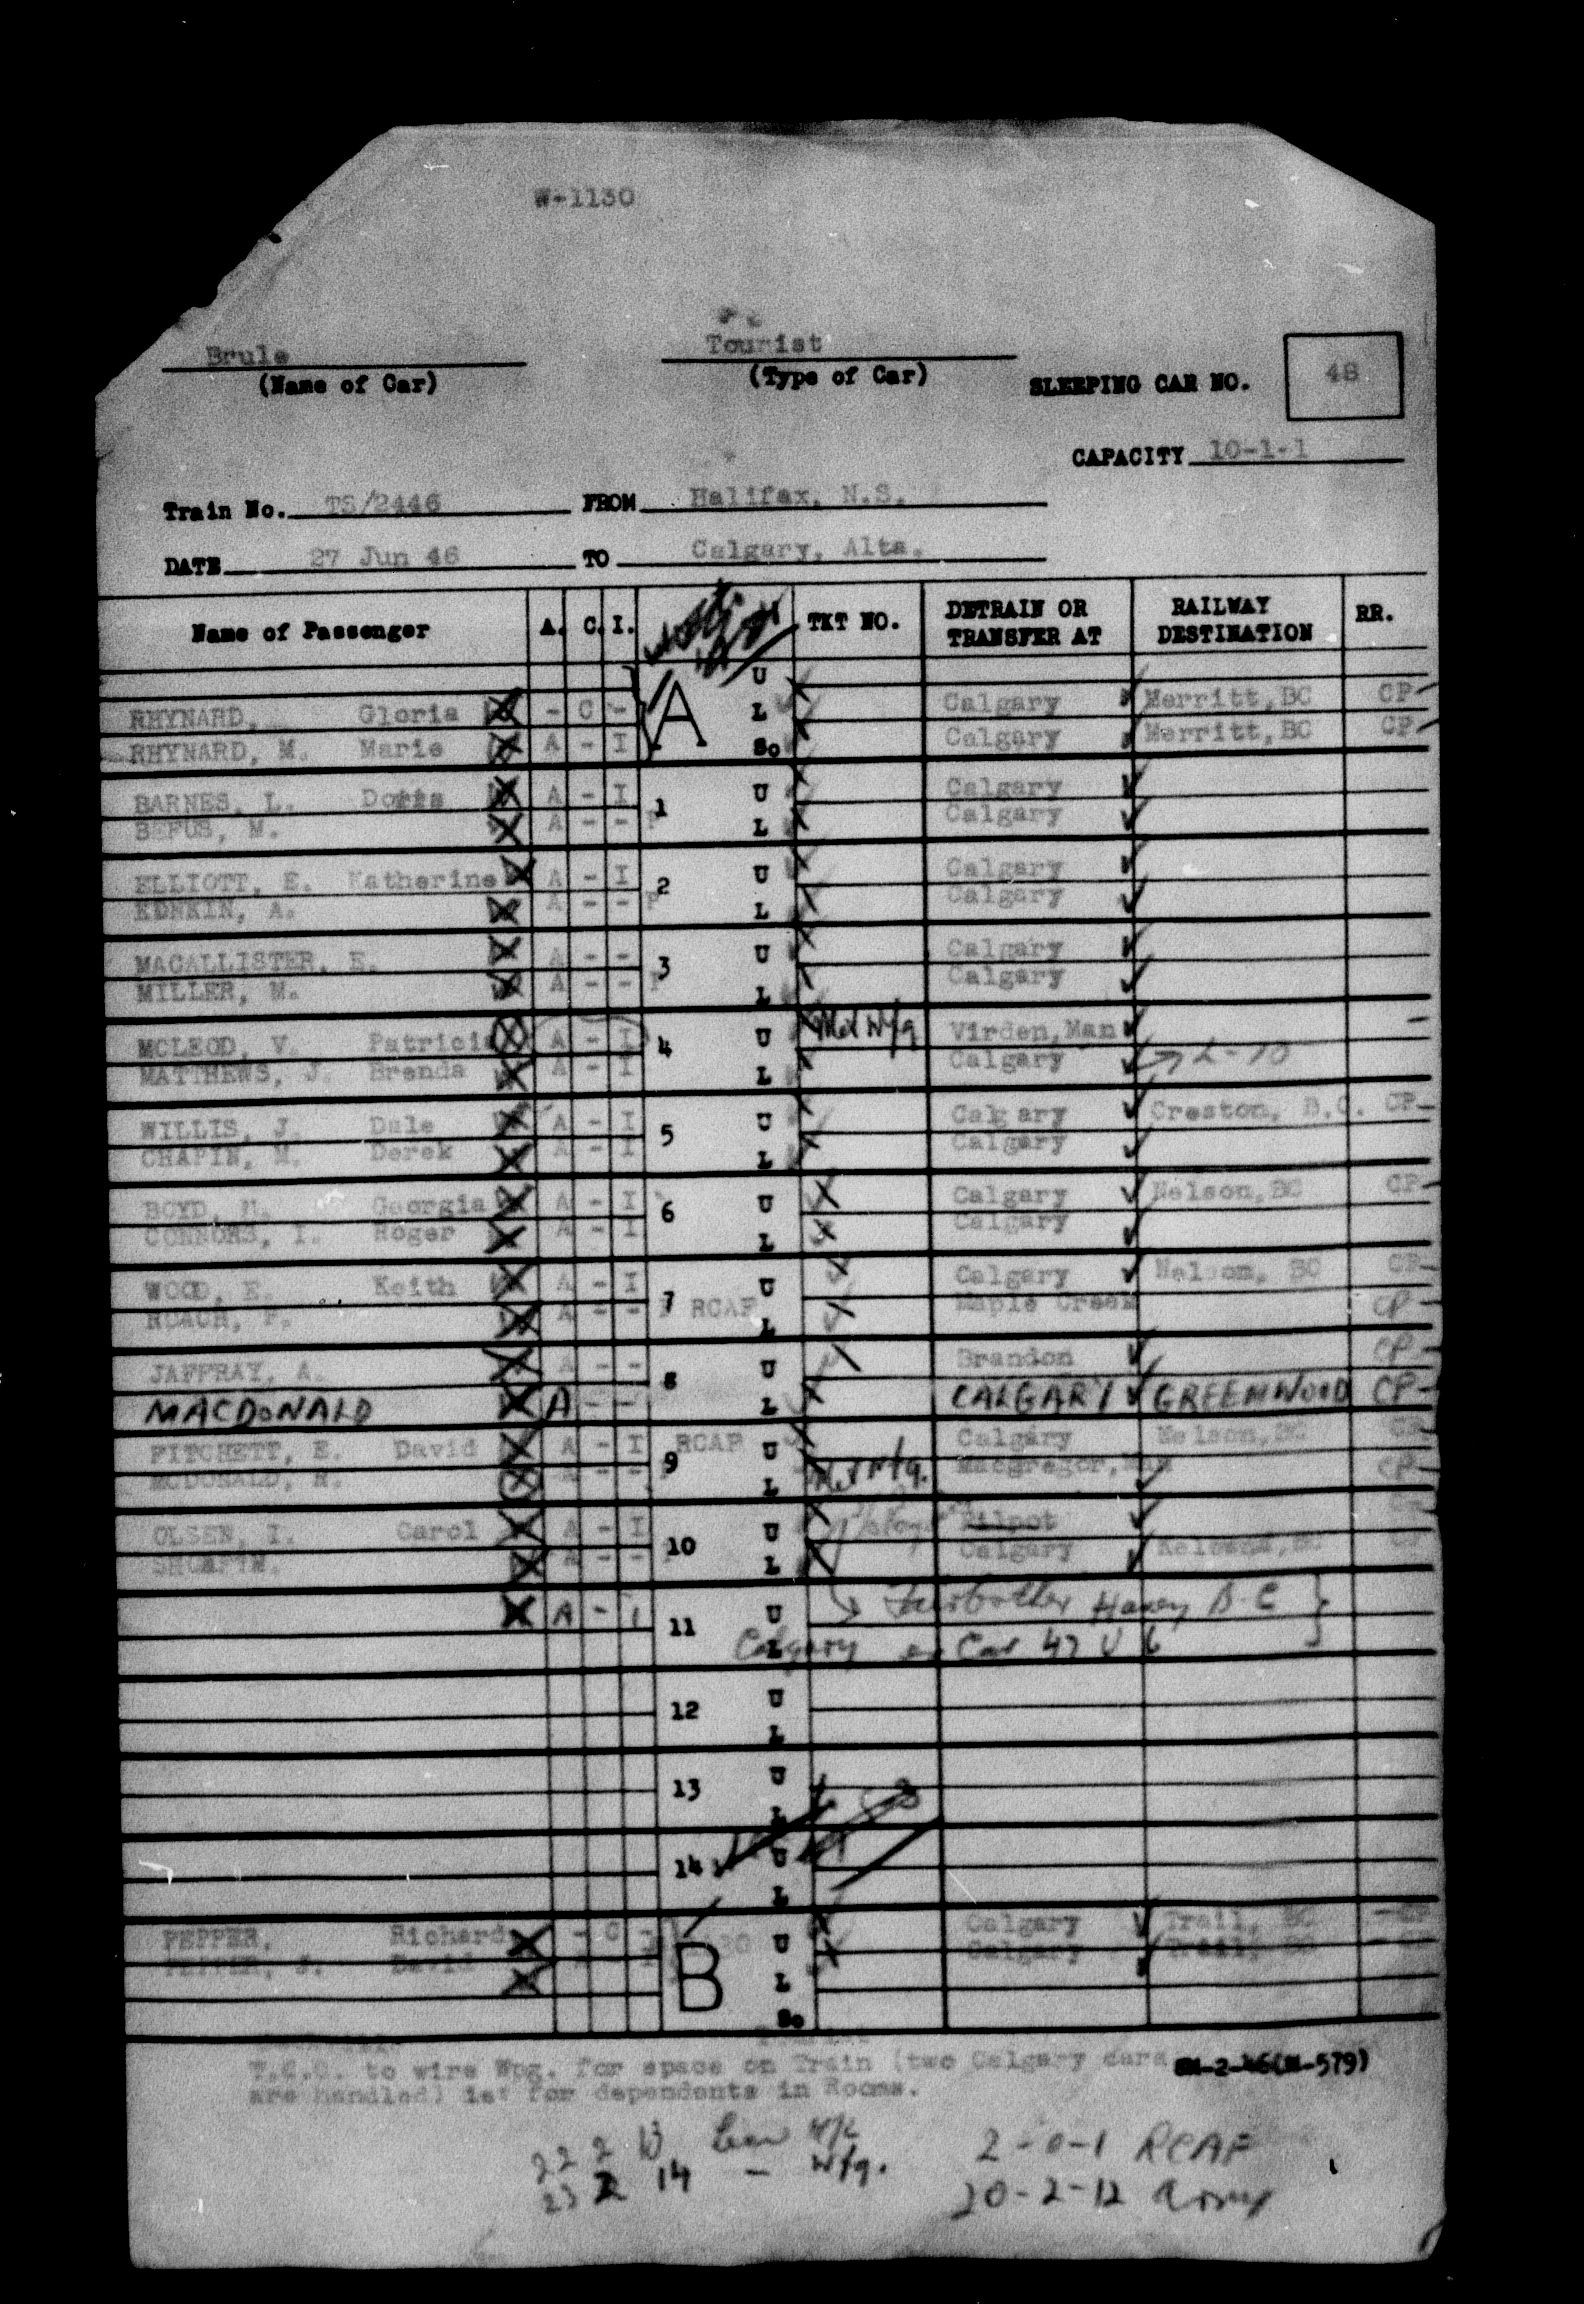 W-1130
Brule Tourist
(Name of Car) (Type of Car) SLEEPING CAR NO. 48
CAPACITY 10-1-1
Train No. TS/2446 FROM Halifax, N.S.
DATE 27 Jun 46 TO Calgary, Alta.
Name of Passenger A. C. I. TKT NO. DETRAIN OR TRANSFER AT RAILWAY DESTINATION RR.
A U
RHYNARD, Gloria - C - L Calgary Merritt, BC CP-
RHYNARD, M. Marie A - I So Calgary Merritt, BC CP-
BARNES, L. A - I 1 U Calgary
BEFUS, M. A - - P L Calgary
ELLIOTT, E. Katherine A - I 2 U Calgary
A. A - - P L Calgary
MACALLISTER, E. A - - 3 U Calgary
MILLER, M. A - - P L Calgary
MCLEOD, V. Patricia A - I 4 U Met Wpg Virden, Man
MATTHEWS, J. Brenda A - I L Calgary
WILLIS, J. Dale A - I 5 U Calgary Creston, B.C. CP-
CHAPIN, M. Derek A - I L Calgary
BOYD, Georgia A - I 6 U Calgary Nelson, BC CP-
CONNORS, I. Roger A - I L Calgary
WOOD, E. Keith A - I 7 U Calgary Nelson, BC CP-
ROACH, F. A - - RCAF L Maple Creek CP-
JAFFRAY, A. A - - 8 U Brandon CP-
MACDONALD A - - L CALGARY GREENWOOD CP-
PITCHETT, E. David A - I RCAF 9 U Calgary Nelson, BC CP-
MCDONALD, R. A - - L Met Wpg. MacGregor, Man CP-
OLSEN, I. Carol A - I 10 U Pilpot
A - - L Calgary
A - 1 11 U B.C
L Calgary Car 47 U 6
12 U
L
13 U
L
14 U
L
PEPPER, Richard - C - B U Calgary Trail, BC - CP
PEPPER, J. David L Calgary Trail, BC
So
T.C.O. to wire Wpg. for space on Train (two Calgary cars (M-579)
are handled) 1st for dependents in Rooms.
22 2 13
23 2 14 - Wpg.
2-0-1 RCAF
20-2-12 Army